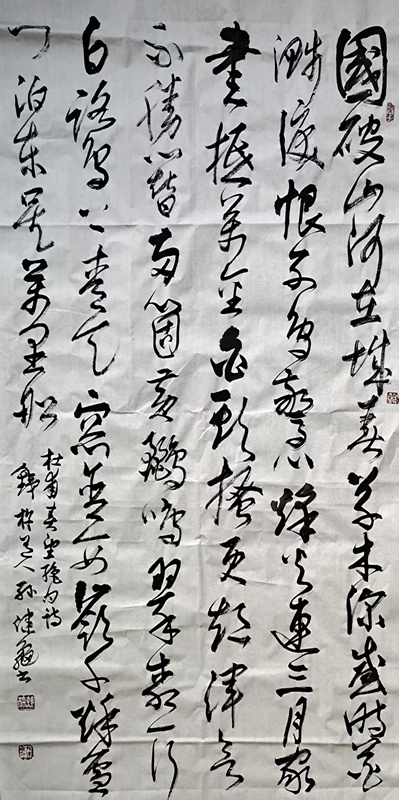 國破山河在城春草木深感時花
濺淚恨別鳥驚心烽火連三月家
書抵萬金白頭搔更短渾欲
不勝簪兩個黃鸝鳴翠柳一行
白鷺上青天窗含西嶺千秋雪
門泊東吳萬里船
杜甫春望絕句詩
道人孫建